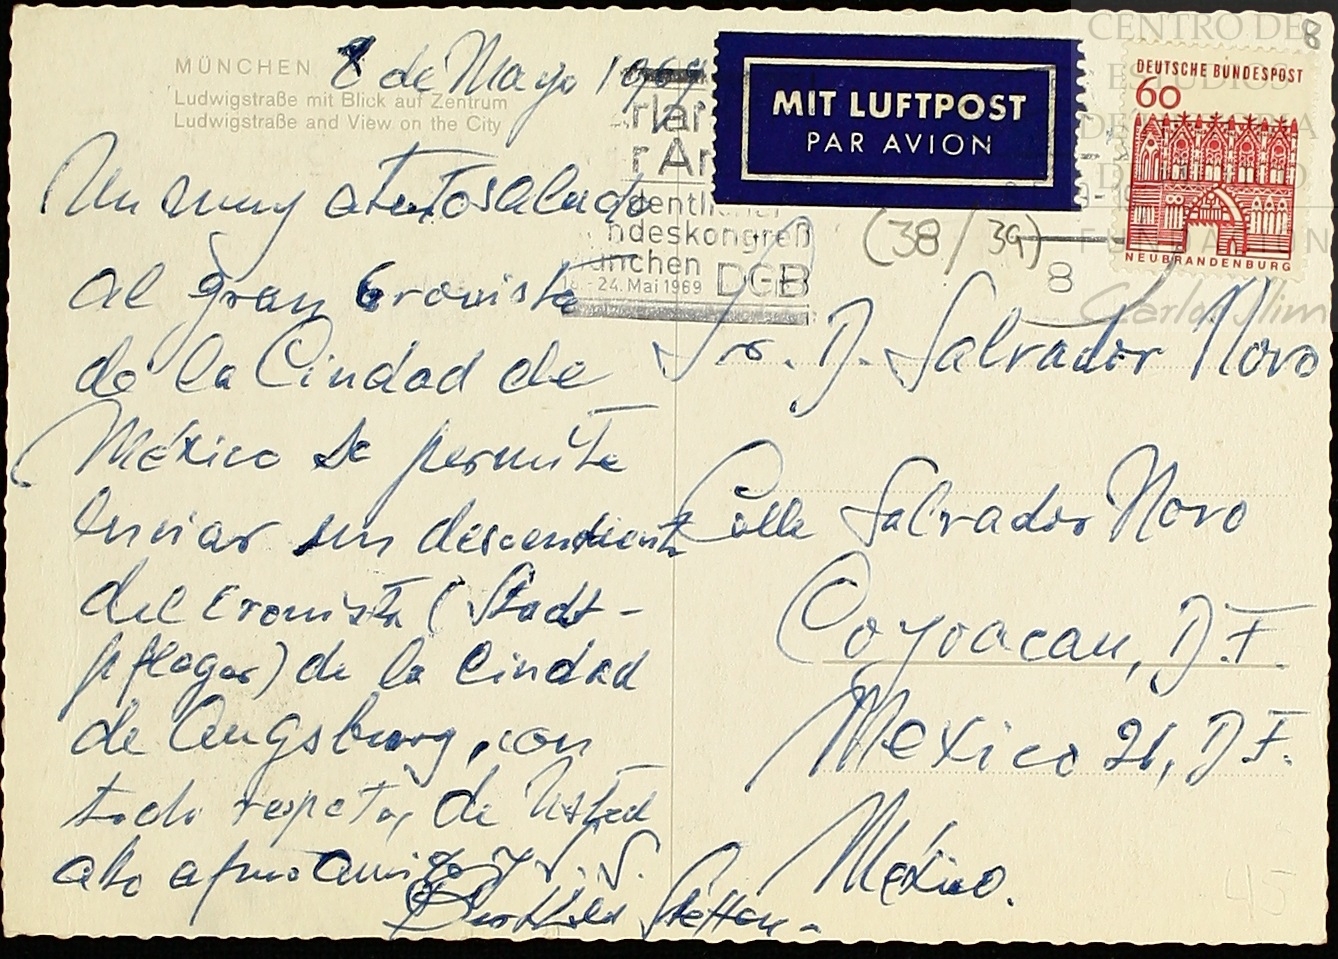 MÜNCHEN
Ludwigstraße mit Blick auf Zentrum
Ludwigstraße and View on the City
8 de Mayo 1969
Un muy atento saludo
al gran Cronista
de la Ciudad de
México se permite
enviar un descendiente
del cronista (Stadt-
pfleger) de la Ciudad
de Augsburg, con
todo respeto, de Usted
atto afmo amigo y S. S.
MIT LUFTPOST
PAR AVION
DEUTSCHE BUNDESPOST
60
NEUBRANDENBURG
rlar
r Ar
dentlicher
ndeskongreß
ünchen DGB
18.-24. Mai 1969
8
(38/39)
8
Sr. D. Salvador Novo
Calle Salvador Novo
Coyoacan, D.F.
Mexico 21, D.F.
México.
45
CENTRO DE
ESTUDIOS
DE HISTORIA
DE MÉXICO
FUNDACIÓN
Carlos Slim